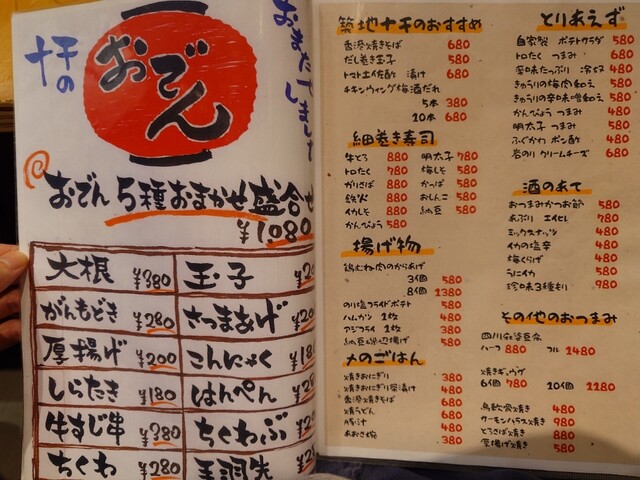 おまたせしました
十干の
おでん
おでん5種おまかせ盛合せ
¥1,080
大根 ¥380 玉子
がんもどき ¥280 さつまあげ
厚揚げ ¥200 こんにゃく
しらたき ¥180 はんぺん
牛すじ串 ¥380 ちくわぶ
ちくわ ¥280
築地十干のおすすめ
香港焼きそば 680
だし巻き玉子 580
トマト土佐酢 漬け 680
チキンウィング梅酒だれ
5本 380
10本 680
細巻き寿司
牛とろ 880 明太子 780
トロたく 780 梅しそ 580
がりさば 880 かっぱ 580
鉄火 880 おしんこ 580
イカしそ 580 納豆 580
かんぴょう 580
揚げ物
鶏むね肉のからあげ
3個 580
8個 1380
のり塩フライドポテト 580
ハムカツ 1枚 480
アジフライ 1枚 380
納豆磯辺揚げ 580
〆のごはん
焼きおにぎり 380
焼きおにぎり茶漬け 480
香港焼きそば 680
焼うどん 680
豚汁 480
あおさ椀 380
とりあえず
自家製 ポテトサラダ 580
トロたく つまみ 680
薬味たっぷり 冷奴 480
きゅうりの梅肉和え 580
きゅうりの辛味噌和え 580
かんぴょう つまみ 480
明太子 つまみ 580
ふぐかわ ポン酢 480
岩のり クリームチーズ 680
酒のあて
おつまみかつお節 580
あぶり エイヒレ 780
ミックスナッツ 480
イカの塩辛 480
梅くらげ 480
うにイカ 580
珍味3種もり 980
その他のおつまみ
四川麻婆豆腐
ハーフ 880 フル 1480
焼きギョウザ
6個 780 10個 1180
鳥軟骨焼き 480
サーモンハラス焼き 980
とろさば焼き 880
厚揚げ焼き 580